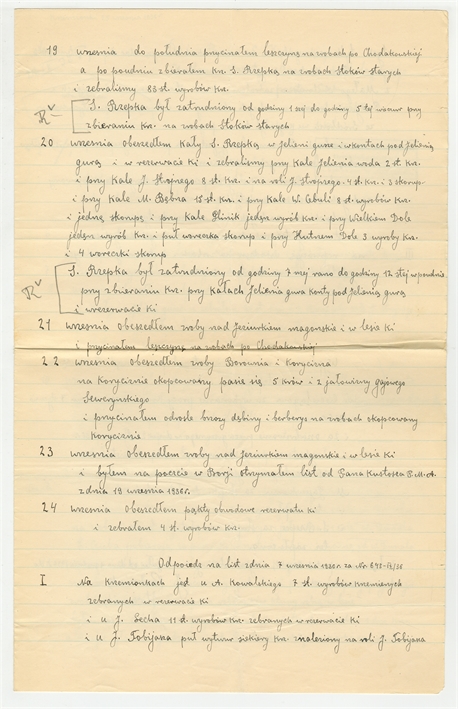 19 wrzesnia do południa przycinałem leszczynę na zrobach po Chodakowskiej
a po poudniu zbierałem krz. S. Rzepką na zrobach Stoków starych
i zebralismy 83 st. wyrobów krz.
R v S. Rzepka był zatrudniony od godziny 1 szej do godziny 5 tej wieczur przy
zbieraniu krz. na zrobach Stoków starych
20 wrzesnia obeszedłem kały S. Rzepką w Jeleni gurze i w kontach pod Jelenią
gurą i w rezerwacie ki i zebralismy przy kale Jelenia woda 2 st. krz.
i przy kale J. Stojnego 8 st. krz. i na roli J. Strojnego 4 st. krz. i 3 skorup
i przy kale M. Bębna 15 st. krz. i przy kale W. Cebuli 8 st. wyrobów krz.
i jedną skorupę i przy kale Glinik jeden wyrób krz. i przy Wielkim Dole
jeden wyrób krz. i puł woreczka skorup i przy Hutnem Dole 3 wyroby krz.
i 4 woreczki skorup
R v S. Rzepka był zatrudniony od godziny 7 mej rano do godziny 12 stej w poudnie
przy zbieraniu krz. przy kałach Jelenia gura konty pod Jelenią gurą
i w rezerwacie ki
21 wrzesnia obeszedłem zroby nad Jeziurkiem magonskie i w lesie ki
i przycinałem leszczynę na zrobach po Chodakowskiej
22 wrzesnia obeszedłem zroby Borownia i Korycizna
na Koryciznie skopcowanej pasie się 5 krów i 2 jałowizny gajowego
Szwczynskiego
i przycinałem odrosle brzozy dębiny i berberys na zrobach skopcowany
Korycizna
23 wrzesnia obeszedłem zroby nad Jeziurkiem magonskie i w lesie ki
i byłem na poczcie w Borji otrzymałem list od Pana Kustosza P.M.A.
z dnia 19 wrzesnia 1936r.
24 wrzesnia obeszedłem pąkty obwodowe rezerwatu ki
i zebrałem 4 st. wyrobów krz.
Odpowiedz na list z dnia 7 wrzesnia 1936r. za Nr.
I Na Krzemionkach jest u A. Kowalskiego 7 st. wyrobów krzemiennych
zebranych w rezerwacie ki
i u J. Secha 11 st. wyrobów krz. zebranych w rezerwacie ki
i u J. Tobijasza puł wytwur siekiery krz. znaleziony na roli J. Tobijasza